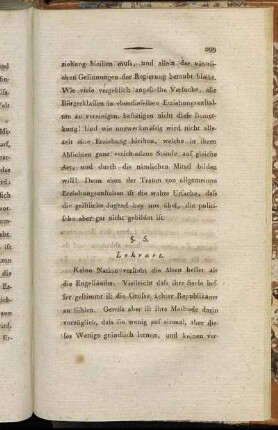 299
ziehung bleiben muss, und allein der väterlichen Gesinnungen der Regierung beraubt bleibt.
Wie viele vergeblich angestellte Versuche, alle
Bürgerklassen in ebendieselben Erziehungsanstalten
zu vereinigen, bestätigen nicht diese Bemerkung!
Und wie unzweckmässig wird nicht allezeit
eine Erziehung bleiben, welche in ihren
Absichten ganz verschiedene Stände auf gleiche
Art, und durch die nämlichen Mittel bilden
will! Denn eben der Traum von allgemeinen
Erziehungsanstalten ist die wahre Ursache, dass
die geistliche Jugend bey uns übel, die politische
aber gar nicht gebildet ist.
§. 5.
Lehrart.
Keine Nation versteht die Alten besser als
die Engelländer. Vielleicht dass ihre Seele besser
gestimmt ist die Grösse ächter Republikaner
zu fühlen. Gewiss aber ist ihre Methode darin
vorzüglich, dass sie wenig auf einmal, aber dieses
Wenige gründlich lernen, und keinen ver-